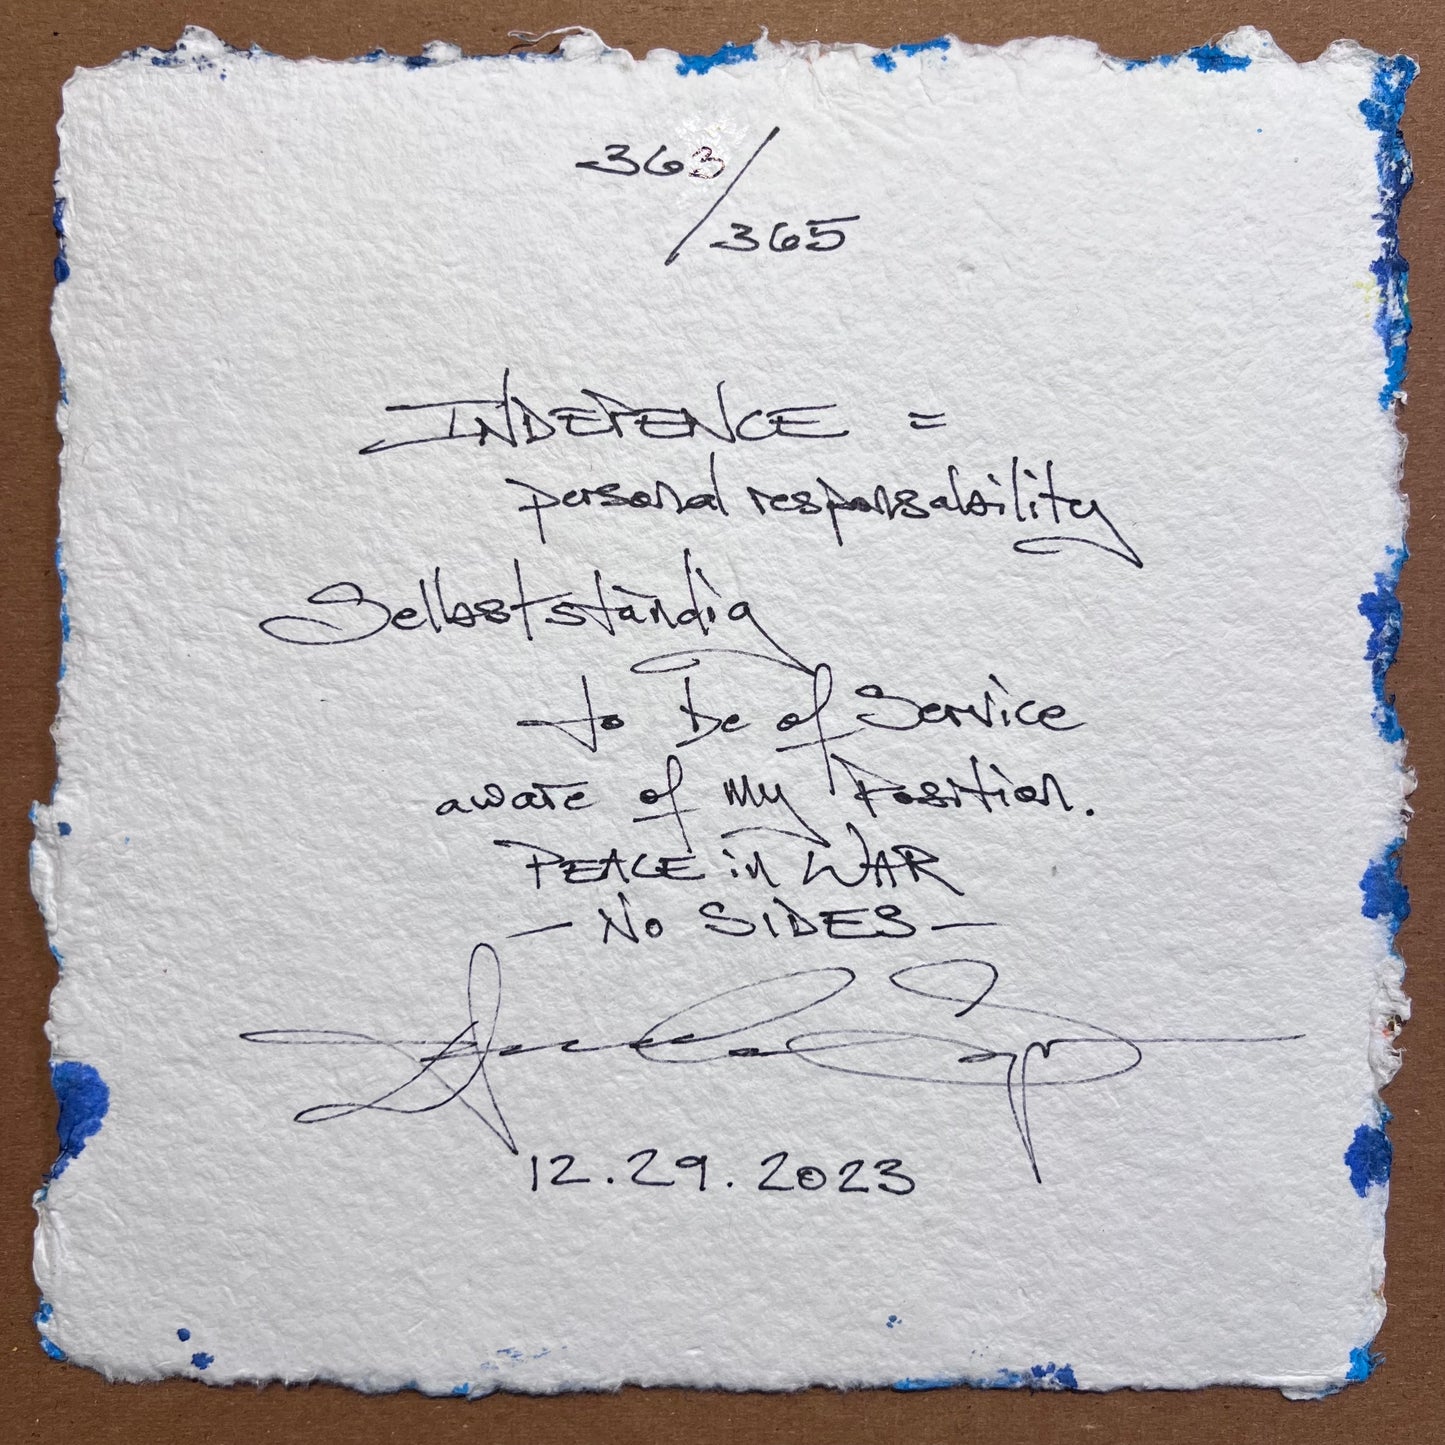 363/
365
INDEPENCE =
personal responsability
Selbstständig
to be of Service
aware of my Position.
PEACE in WAR
- NO SIDES -
12.29.2023